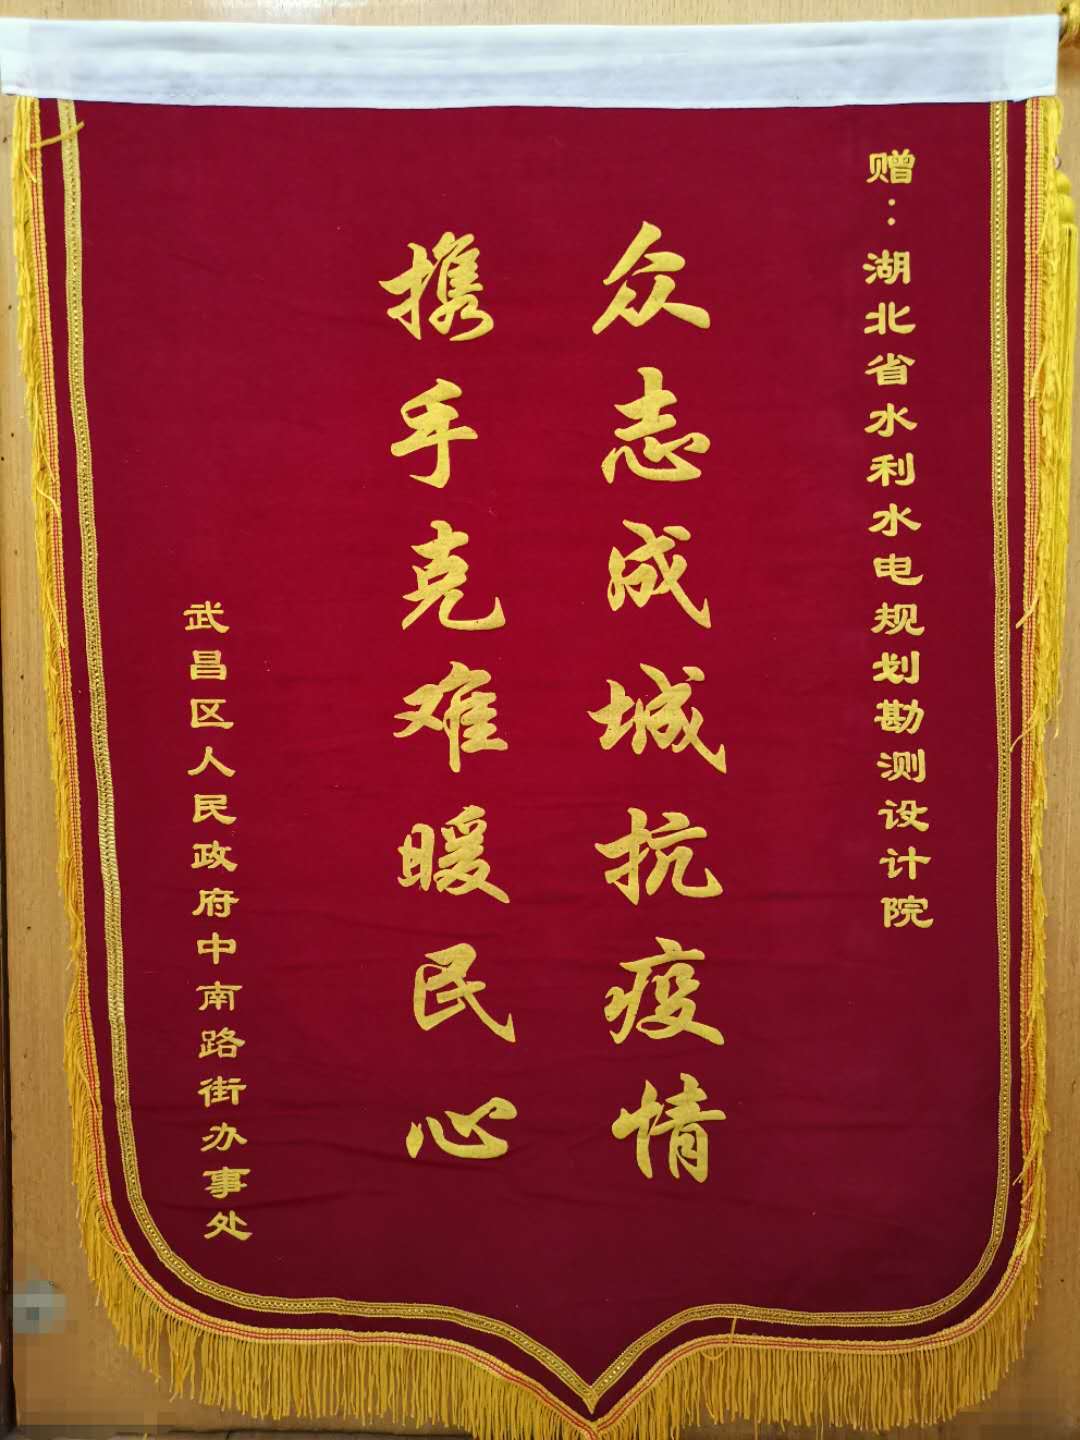 赠：湖北省水利水电规划勘测设计院
众志成城抗疫情
携手克难暖民心
武昌区人民政府中南路街办事处